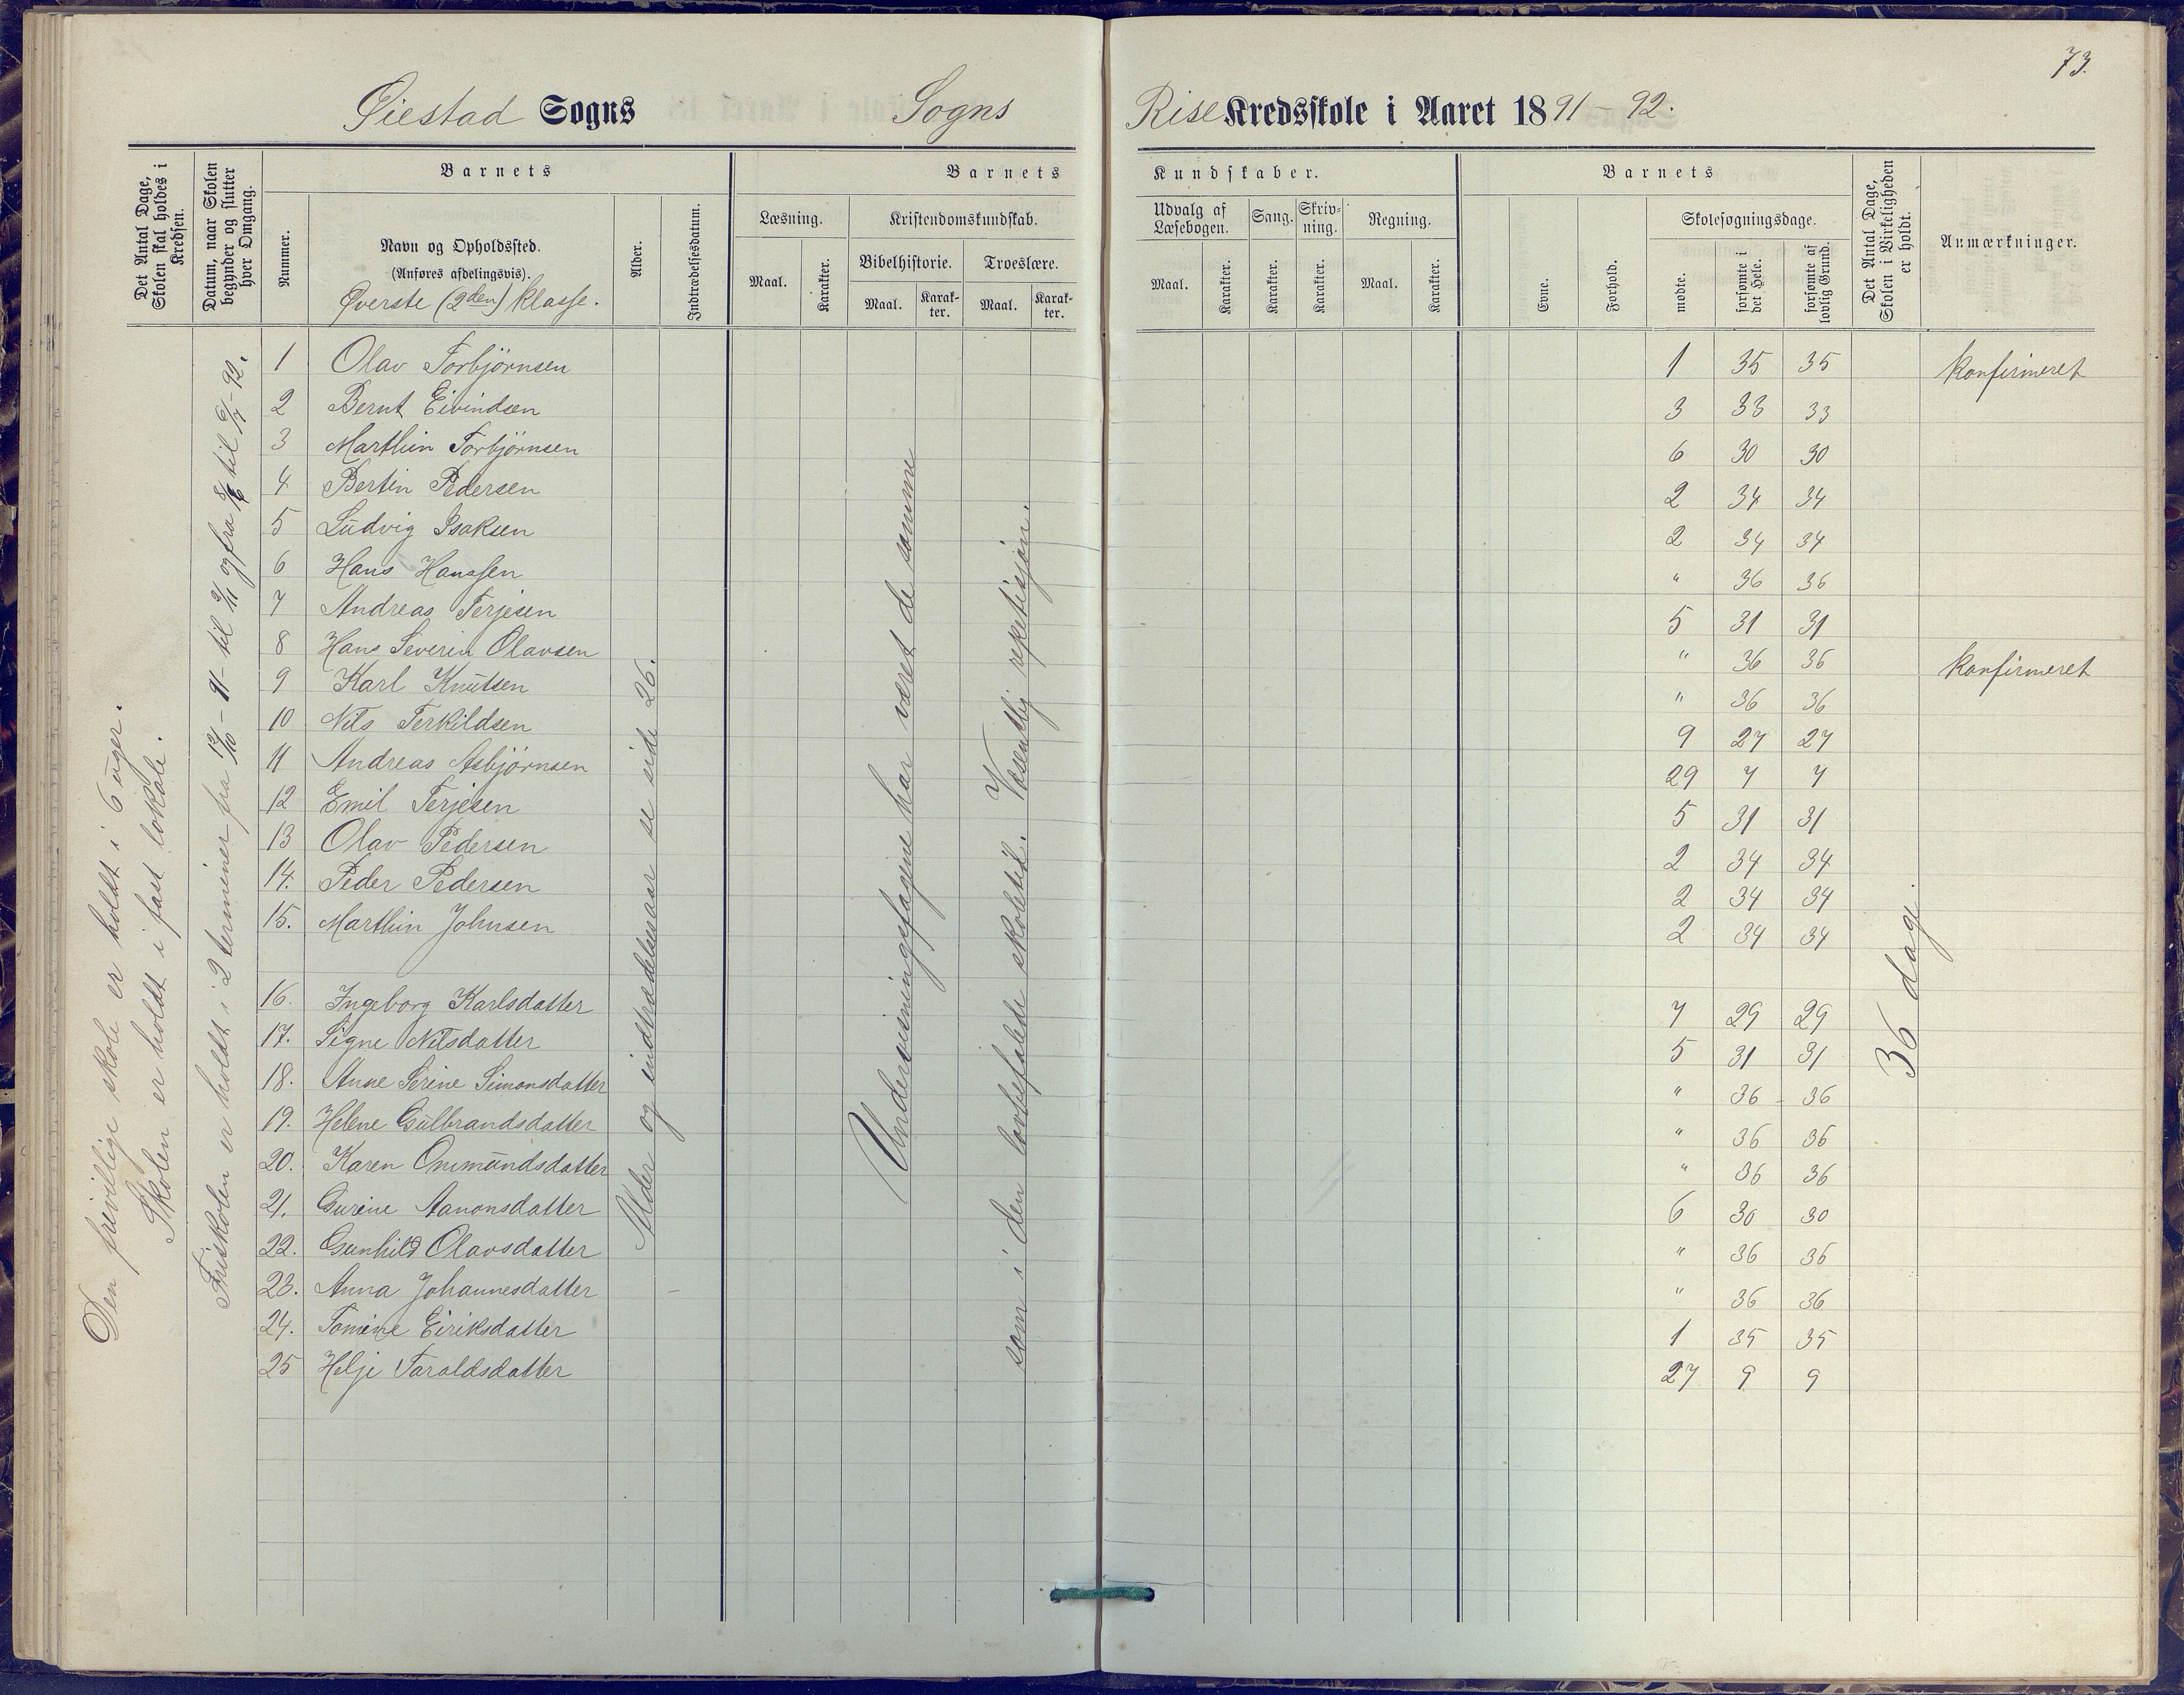 73.
Øiestad Sogns Sogns Rise Kredsskole i Aaret 1891-92.
Det Antal Dage, Skolen skal holdes i Kredsen.
Datum, naar Skolen begynder og slutter hver Omgang.
Barnets
Nummer.
Navn og Opholdssted.
(Anføres afdelingsvis).
Øverste (2den) klasse.
Alder.
Indtrædelsesdatum.
Barnets Kundskaber.
Læsning.
Maal.
Karakter.
Kristendomskundskab.
Bibelhistorie.
Maal.
Karakter.
Troeslære.
Maal.
Karakter.
Udvalg af Læsebogen.
Maal.
Karakter.
Sang.
Karakter.
Skrivning.
Karakter.
Regning.
Maal.
Karakter.
Barnets
Evne.
Forhold.
Skolesøgningsdage.
mødte.
forsømte i det Hele.
forsømte af lovlig Grund.
Det Antal Dage, Skolen i Virkeligheden er holdt.
Anmærkninger.
Den frivillige skole er holdt i 6 uger.
Skolen er holdt i fast lokale.
Friskolen er holdt i 2 terminer fra 12/10-91- til 3/11 og fra til 6/7-92.
Alder og indtrædelsesaar se side 26.
Undervisningsfagene har været de samme
som i den lovbefalede skoletid. Væsentlig repetisjon.
36 dage.
1 Olav Torbjørnsen 1 35 35 Konfirmeret
2 Bernt Eivindsen 3 33 33
3 Marthin Torbjørnsen 6 30 30
4 Bertin Pedersen 2 34 34
5 Ludvig Isaksen 2 34 34
6 Hans Hanssen " 36 36
7 Andreas Terjesen 5 31 31
8 Hans Severin Olavsen " 36 36 Konfirmeret
9 Karl Knutsen " 36 36
10 Nils Terkildsen 9 27 27
11 Andreas Asbjørnsen 29 7 7
12 Emil Terjesen 5 31 31
13 Olav Pedersen 2 34 34
14. Peder Pedersen 2 34 34
15. Marthin Johnsen 2 34 34
16. Ingeborg Karlsdatter 7 29 29
17. Signe Nilsdatter 5 31 31
18. Anne Serine Simonsdatter " 36 36
19. Helene Gulbrandsdatter " 36 36
20. Karen Ommundsdatter " 36 36
21. Gurine Aanonsdatter 6 30 30
22. Gunhild Olavsdatter " 36 36
23. Anna Johannesdatter " 36 36
24. Tomine Eiriksdatter 1 35 35
25 Helje Taraldsdatter 27 9 9